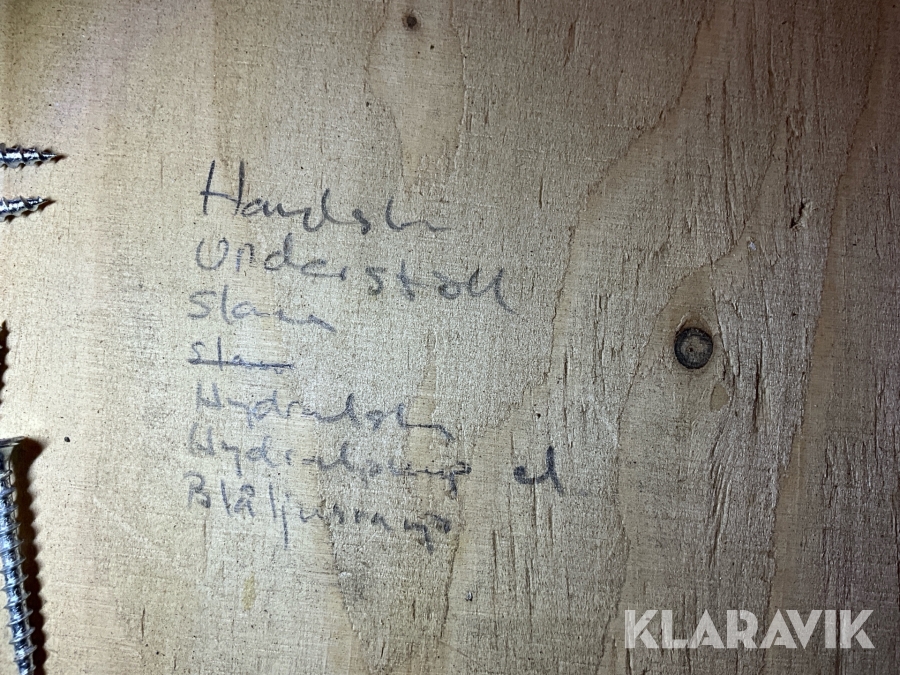 Handsk
Underställ
Slang
Sla
Hydralsky
Hydralpump el
Blåljusramp
KLARAVIK